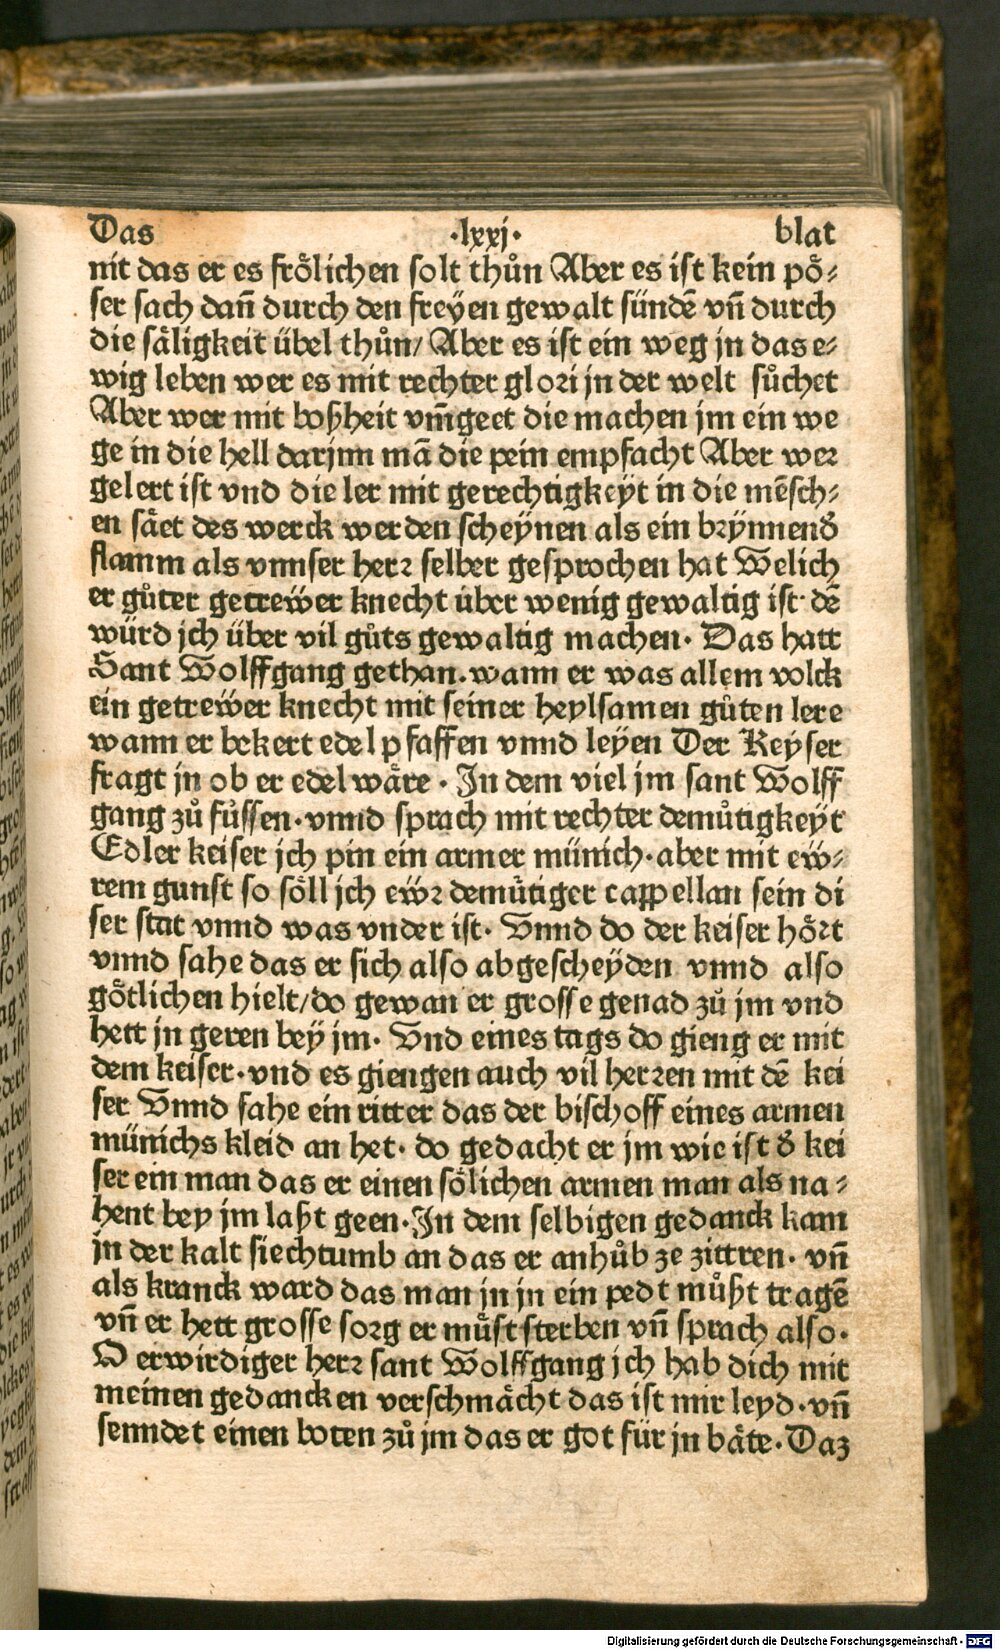 Das .lxxj. blat
nit das er es frölichen solt thůn Aber es ist kein pö⸗
ser sach dañ durch den freyen gewalt sündē vñ durch
die säligkeit übel thůn/ Aber es ist ein weg jn das e⸗
wig leben wer es mit rechter glori jn der welt sůchet
Aber wer mit boßheit vm̄geet die machen jm ein we
ge in die hell darjnn mā die pein empfacht Aber wer
gelert ist vnd die ler mit gerechtigkeyt in die mēsch⸗
en säet des werck werden scheynen als ein brynnend̕
flamm als vnnser herr selber gesprochen hat Welich
er gůter getreẅer knecht über wenig gewaltig ist dē
würd jch über vil gůts gewaltig machen. Das hatt
Sant Wolffgang gethan. wann er was allem volck
ein getreẅer knecht mit seiner heylsamen gůten lere
wann er bekert edel pfaffen vnnd leyen Der Keyser
fragt jn ob er edel wäre. In dem viel jm sant Wolff
gang zů fůssen. vnnd sprach mit rechter demůtigkeyt
Edler keiser jch pin ein armer münich. aber mit eẅ⸗
rem gunst so söll jch eẅr demütiger cappellan sein di
ser stat vnnd was vnder ist. Vnnd do der keiser hört
vnnd sahe das er sich also abgescheyden vnnd also
götlichen hielt/do gewan er grosse genad zů jm vnd
hett jn geren bey jm. Vnd eines tags do gieng er mit
dem keiser. vnd es giengen auch vil herren mit dē kei
ser Vnnd sahe ein ritter das der bischoff eines armen
münichs kleid an het. do gedacht er jm wie ist d̕ kei
ser ein man das er einen sölichen armen man als na⸗
hent bey jm laßt geen. In dem selbigen gedanck kam
jn der kalt siechtumb an das er anhůb ze zittren. vñ
als kranck ward das man jn jn ein pedt můßt tragē
vñ er hett grosse sorg er můst sterben vñ sprach also.
O erwirdiger herr sant Wolffgang jch hab dich mit
meinen gedancken verschmächt das ist mir leyd. vñ
senndet einen boten zů jm das er got für jn bäte. Daz
Digitalisierung gefördert durch die Deutsche Forschungsgemeinschaft - DFG